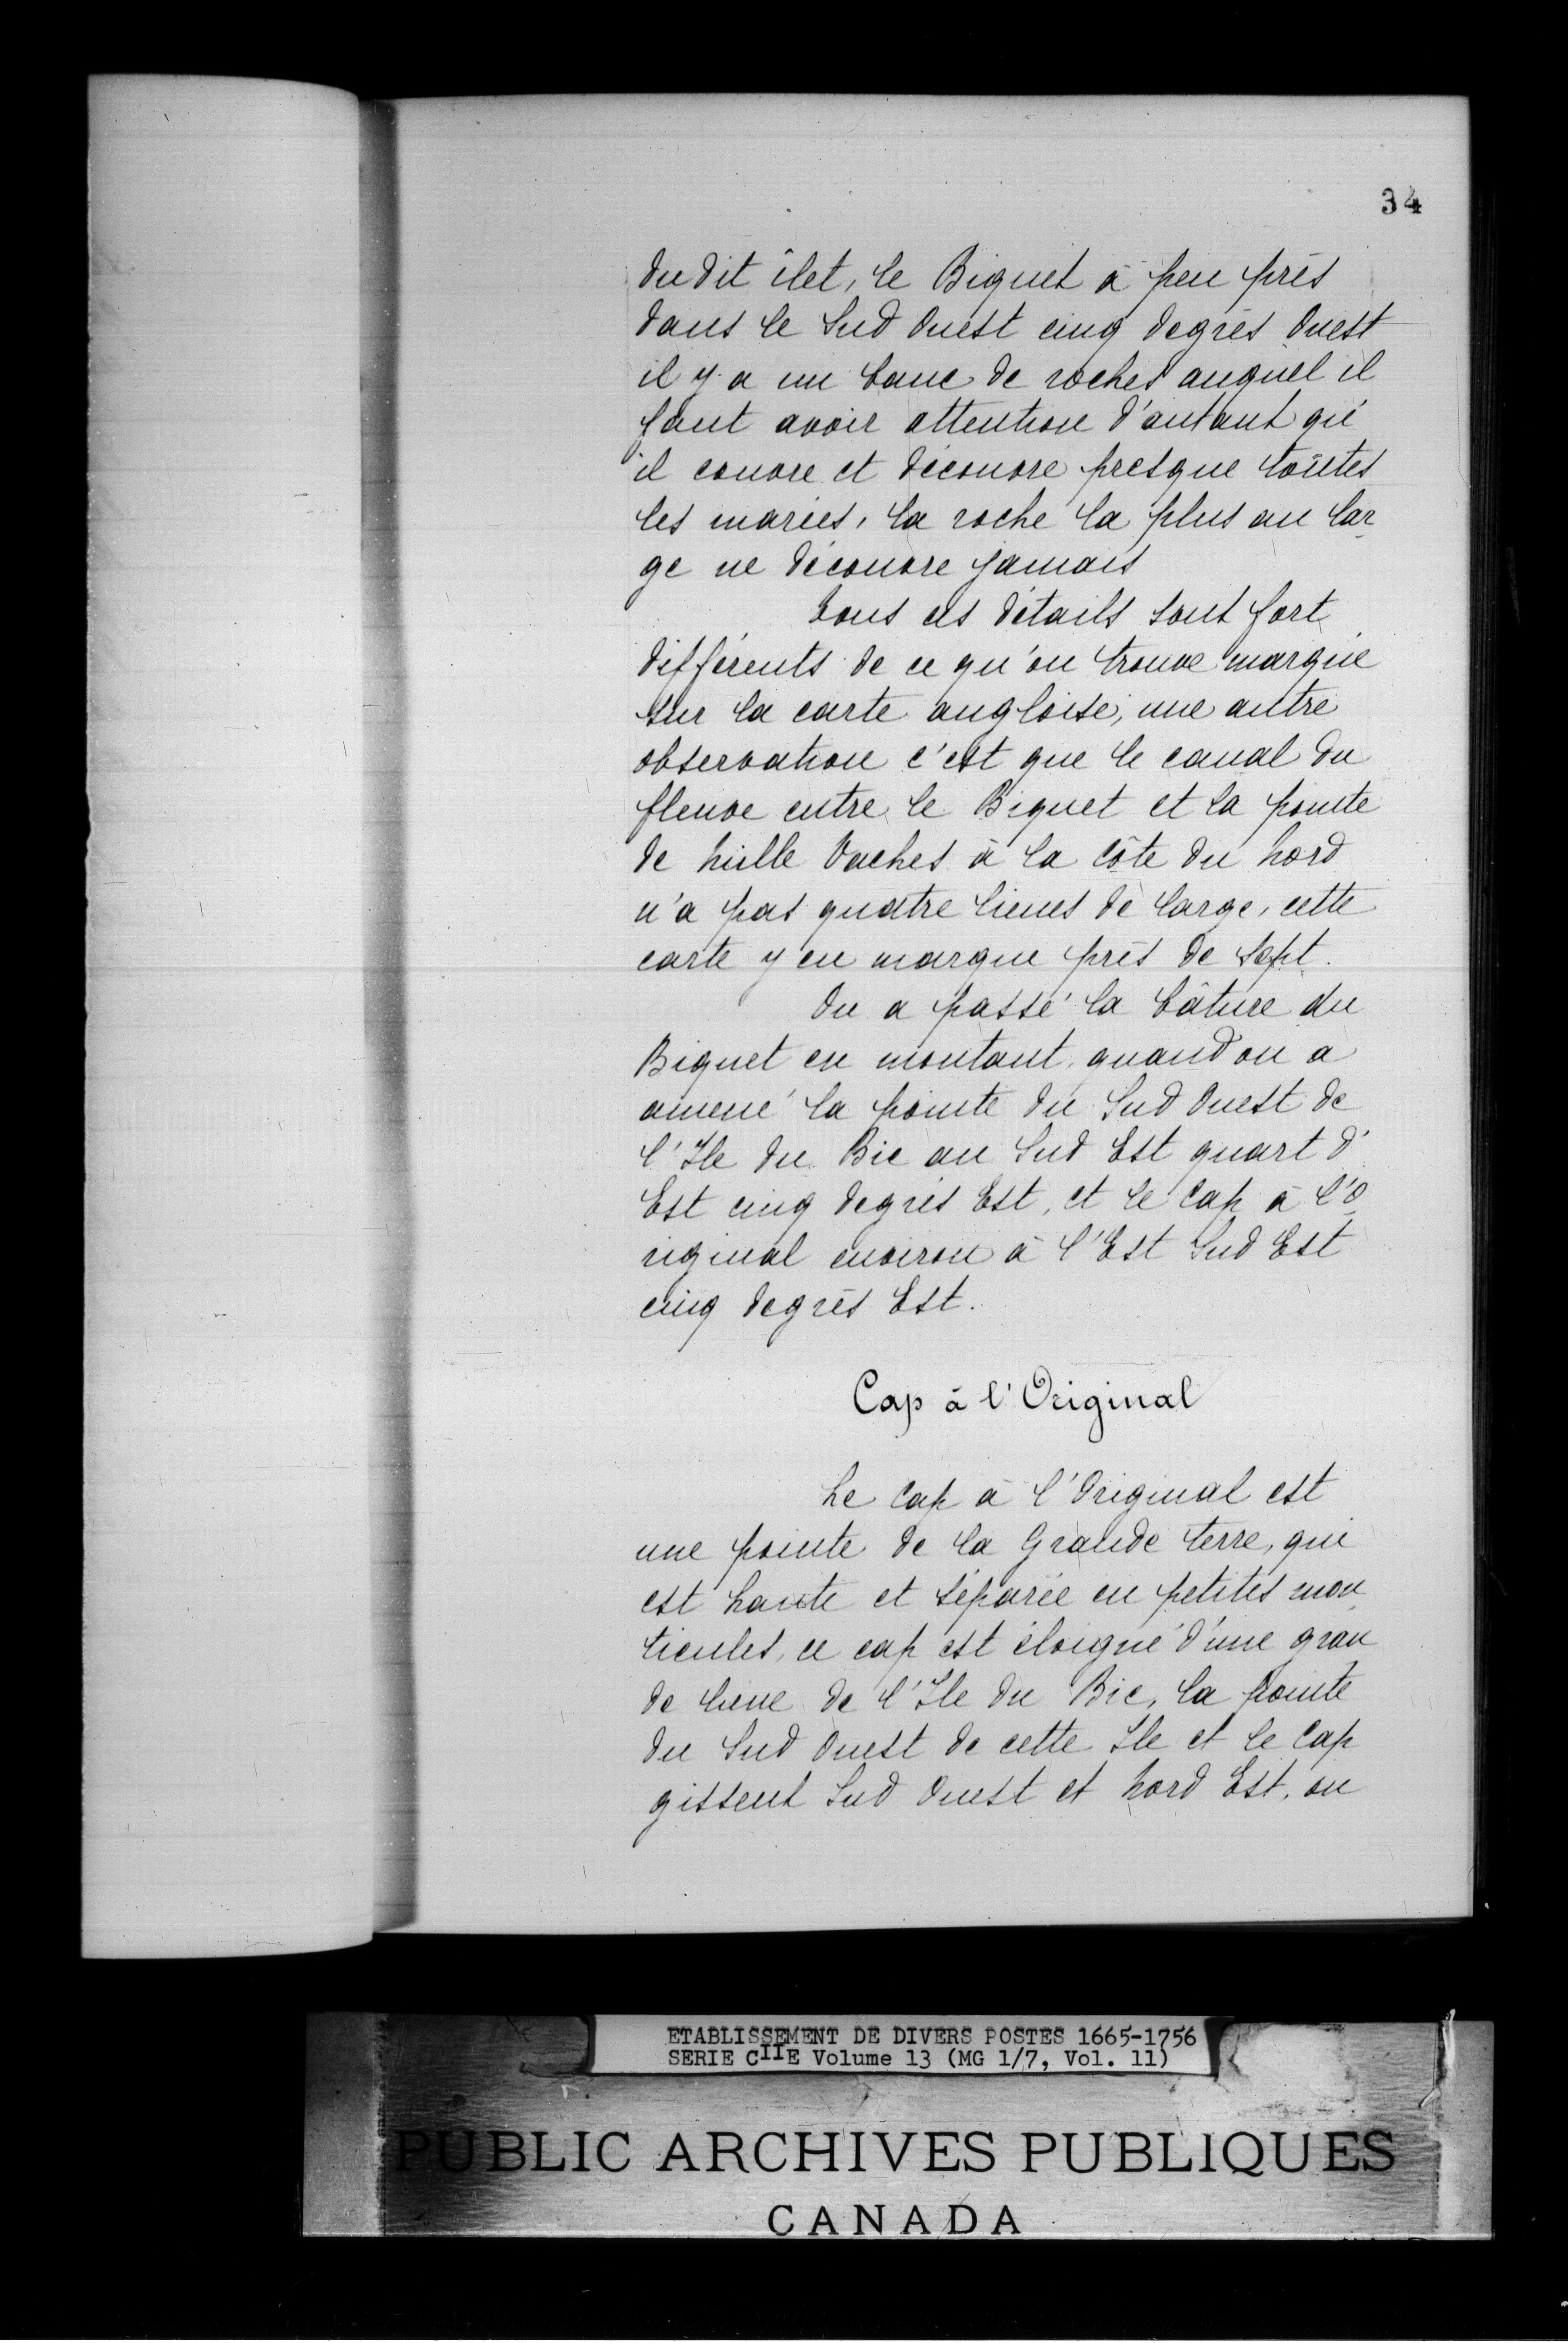 34
du dit îlet, le Biquet à peu près
dans le Sud Ouest cinq degrés Ouest
il y a un banc de roches auquel il
faut avoir attention d'autant qu'
il couvre et découvre presque toutes
les marées, la roche la plus au lar
ge ne découvre jamais
Tous ces détails sont fort
différents de ce qu'on trouve marqué
sur la carte angloise, une autre
observation c'est que le canal du
fleuve entre le Biquet et la pointe
de Mille Vaches à la Côte du Nord
n'a pas quatre lieues de large, cette
carte y en marque près de Sept.
On a passé la bâture du
Biquet en montant, quand on a
amené la pointe du Sud Ouest de
l'Ile du Bic au Sud Est quart d'
Est cinq degrés Est, et le Cap à l'O
riginal environ à l'Est Sud Est
cinq degrés Est.
Cap à l'Original
Le Cap à l'Original est
une pointe de la Grande terre, qui
est haute et séparée en petites mon
ticules, ce cap est éloigné d'une gran
de lieue de l'Ile du Bic, la pointe
du Sud Ouest de cette Ile et le Cap
gissent Sud Ouest et Nord Est, on
ETABLISSEMENT DE DIVERS POSTES 1665-1756
SERIE CIIE Volume 13 (MG 1/7, Vol. 11)
PUBLIC ARCHIVES PUBLIQUES
CANADA